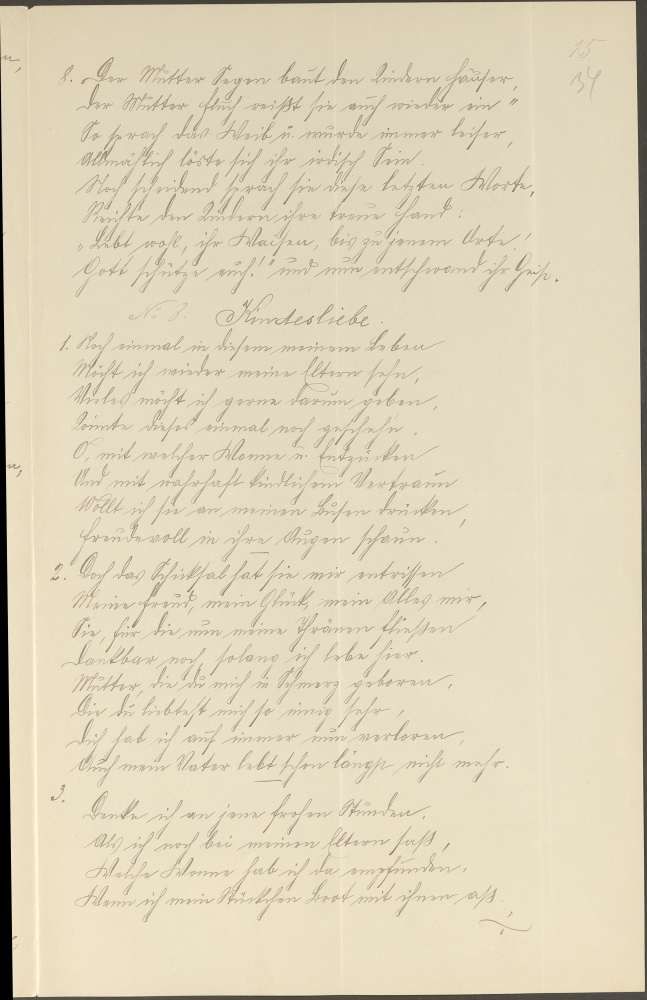 15
34
8. Der Mutter Segen baut den Kindern Häuser,
Der Mutter Fluch reißt sie auch wieder ein"
So sprach das Weib u. wurde immer leiser,
Allmählich löste sich ihr irdisch Sein.
Noch scheidend sprach sie diese letzten Worte,
Reichte den Kindern ihre treue Hand:
"Lebt wohl, ihr Waisen, bis zu jenem Orte!
Gott schütze euch!" und nun entschwand ihr Geist.
No 8. Kindesliebe.
1. Noch einmal in diesem meinem Leben
Möcht ich wieder meine Eltern sehn,
Vieles möcht ich gerne darum geben,
Könnte dieses einmal noch geschehn.
O, mit welcher Wonne u. Entzücken
Und mit wahrhaft kindlichem Vertraun
Wollt ich sie an meinen Busen drücken,
Freudevoll in ihre Augen schaun.
2. Doch das Schicksal hat sie mir entrissen
Meine Freud, mein Glück, mein Alles mir,
Sie, für die nun meine Thränen fliessen
Dankbar noch, solang ich lebe hier.
Mutter, die du mich in Schmerz geboren,
Die du liebtest mich so innig sehr,
Dich hab ich auf immer nun verloren,
Auch mein Vater lebt schon längst nicht mehr.
3.
Denke ich an jene frohen Stunden,
Als ich noch bei meinen Eltern saß,
Welche Wonne hab ich da empfunden,
Wenn ich mein Stückchen Brot mit ihnen aß.